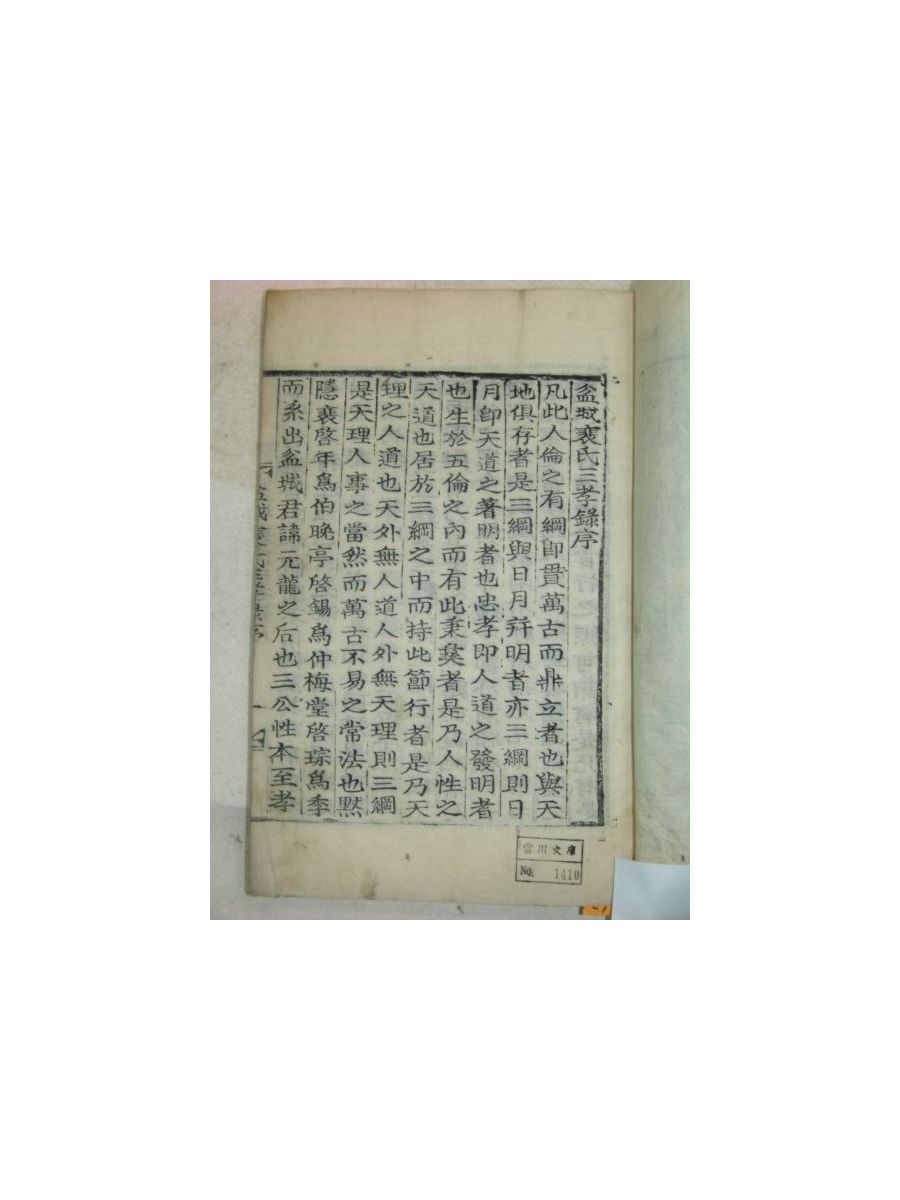 盆城裵氏三孝錄序
凡此人倫之有綱卽亘萬古而鼎立者也與天
地俱存者是三綱與日月幷明者亦三綱則日
月卽天道之著明者也忠孝卽人道之發明者
也生於五倫之內而有此秉彜者是乃人性之
天道也居於三綱之中而持此節行者是乃天
理之人道也天外無人道人外無天理則三綱
是天理人事之當然而萬古不易之常法也黙
隱裵啓年爲伯晩亭啓錫爲仲梅堂啓琮爲季
而系出盆城君諱元龍之后也三公性本至孝
雲川文庫
No. 1410